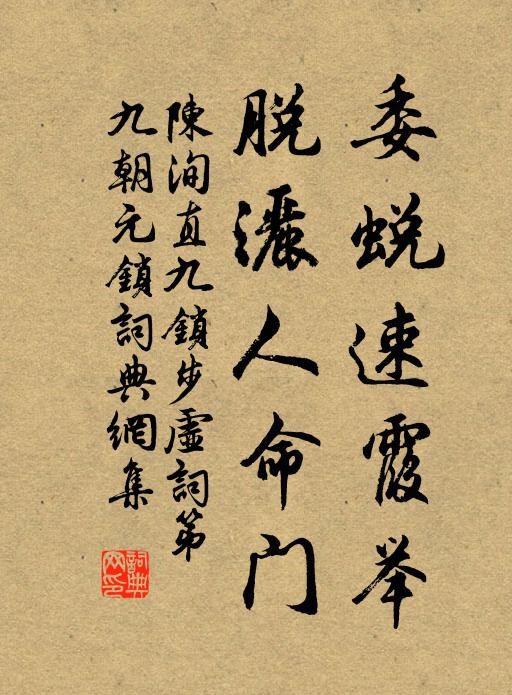 委蜕速霞举
脱灑人命门
陳洵直九鎖步虛詞第
九朝元鎖詞典網集
詞典网印